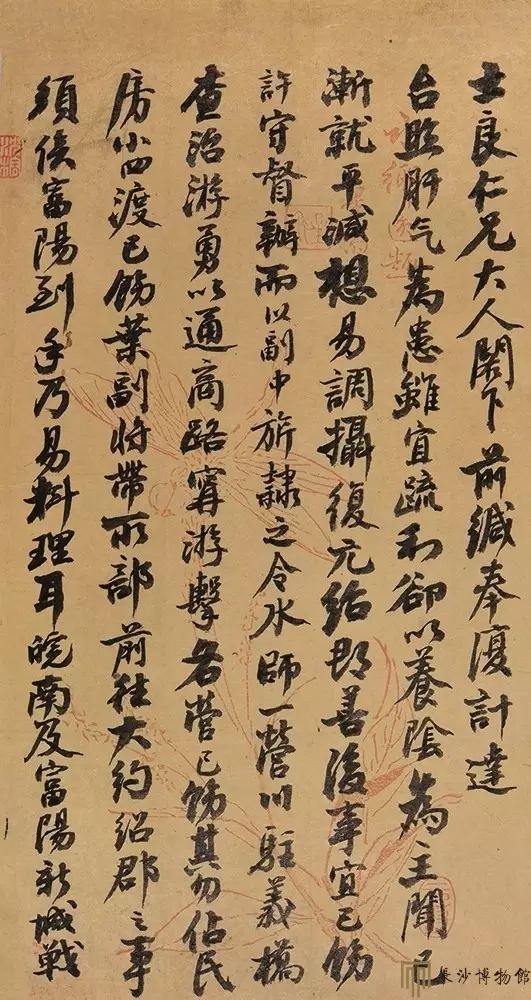 士良仁兄大人閣下前緘奉復計達
台照肝气為患雖宜疏利卻以養陰為主聞已
漸就平減想易調攝復元紹郡善後事宜已飭
許守督辦而以副中旂隸之令水師一營川駐義橋
查治游勇以通商路甯游擊各營已飭其勿佔民
房小西渡已飭葉副將帶所部前往大約紹郡之事
須俟富陽到手乃易料理耳皖南及富陽新城戰
長沙博物館